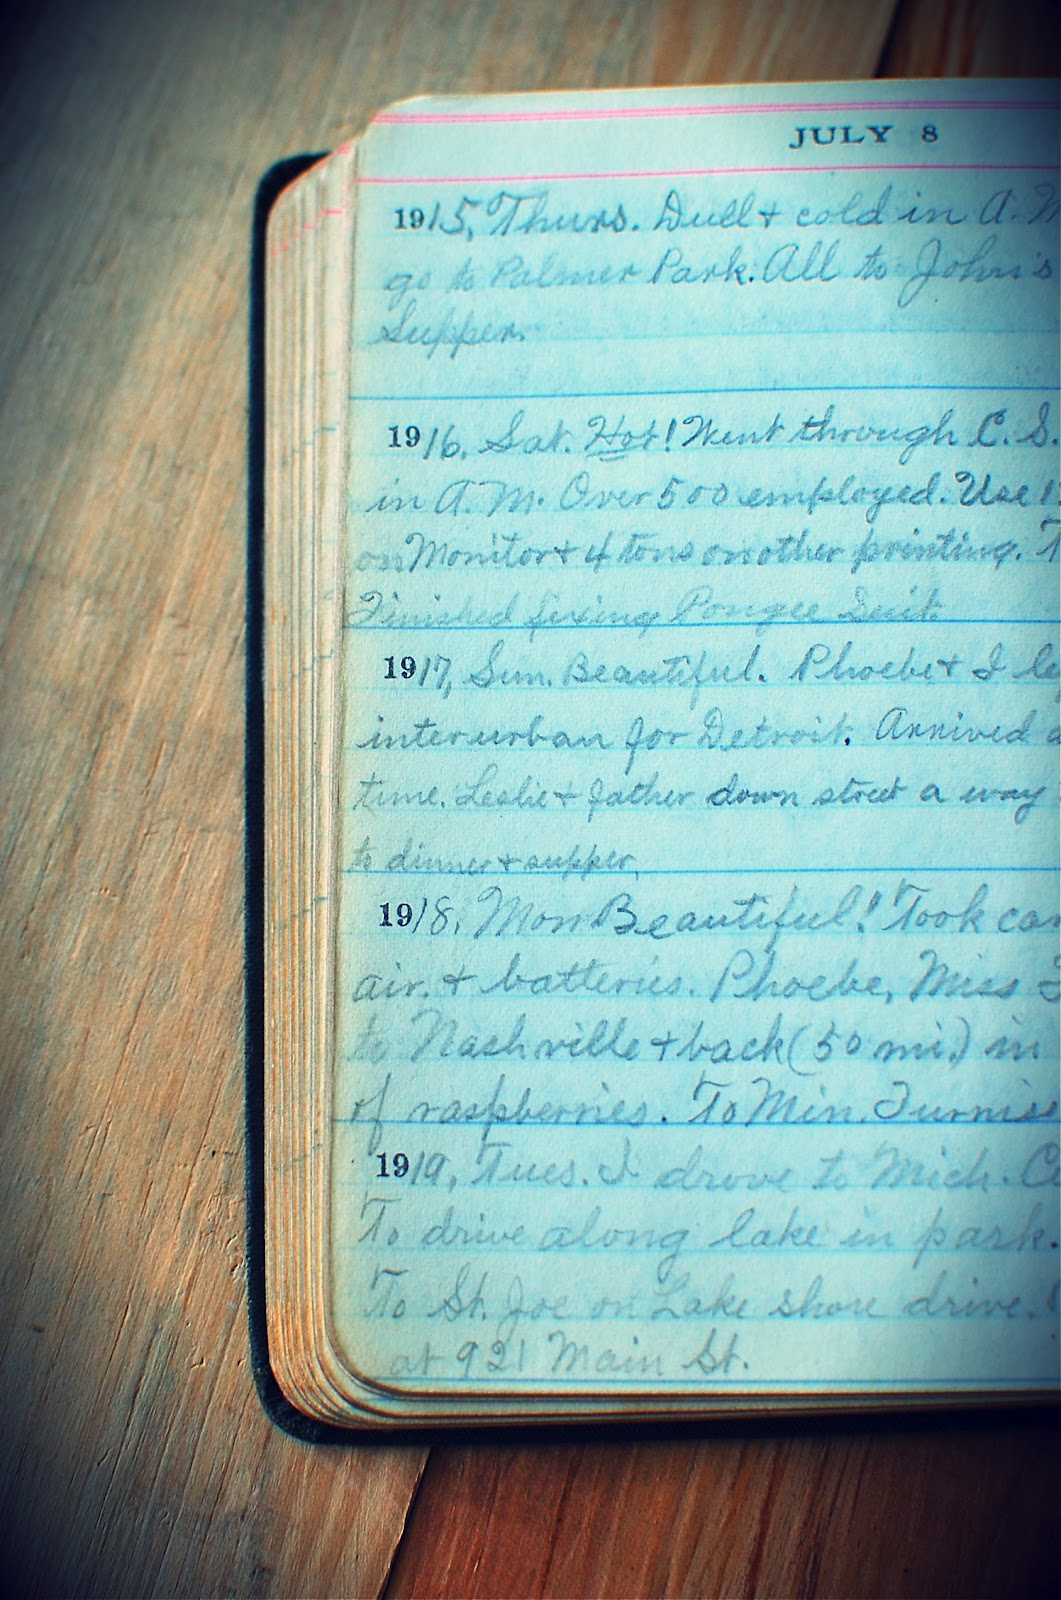 JULY 8
1915, Thurs. Dull + cold in A. M
go to Palmer Park. All to John's
Supper.
1916, Sat. Hot! Went through C. S.
in A. M. Over 500 employed. Use
on Monitor + 4 tons on other printing. T
Finished fixing Pongee Suit.
1917, Sun. Beautiful. Phoebe + I le
interurban for Detroit. Arrived
time. Leslie + father down street a way
to dinner + supper.
1918, Mon Beautiful! Took car
air. + batteries. Phoebe, Miss
to Nashville + back (50 mi.) in
of raspberries. To Min.
1919, Tues. I drove to Mich. C
To drive along lake in park.
To St. Joe on Lake shore drive.
at 921 Main St.